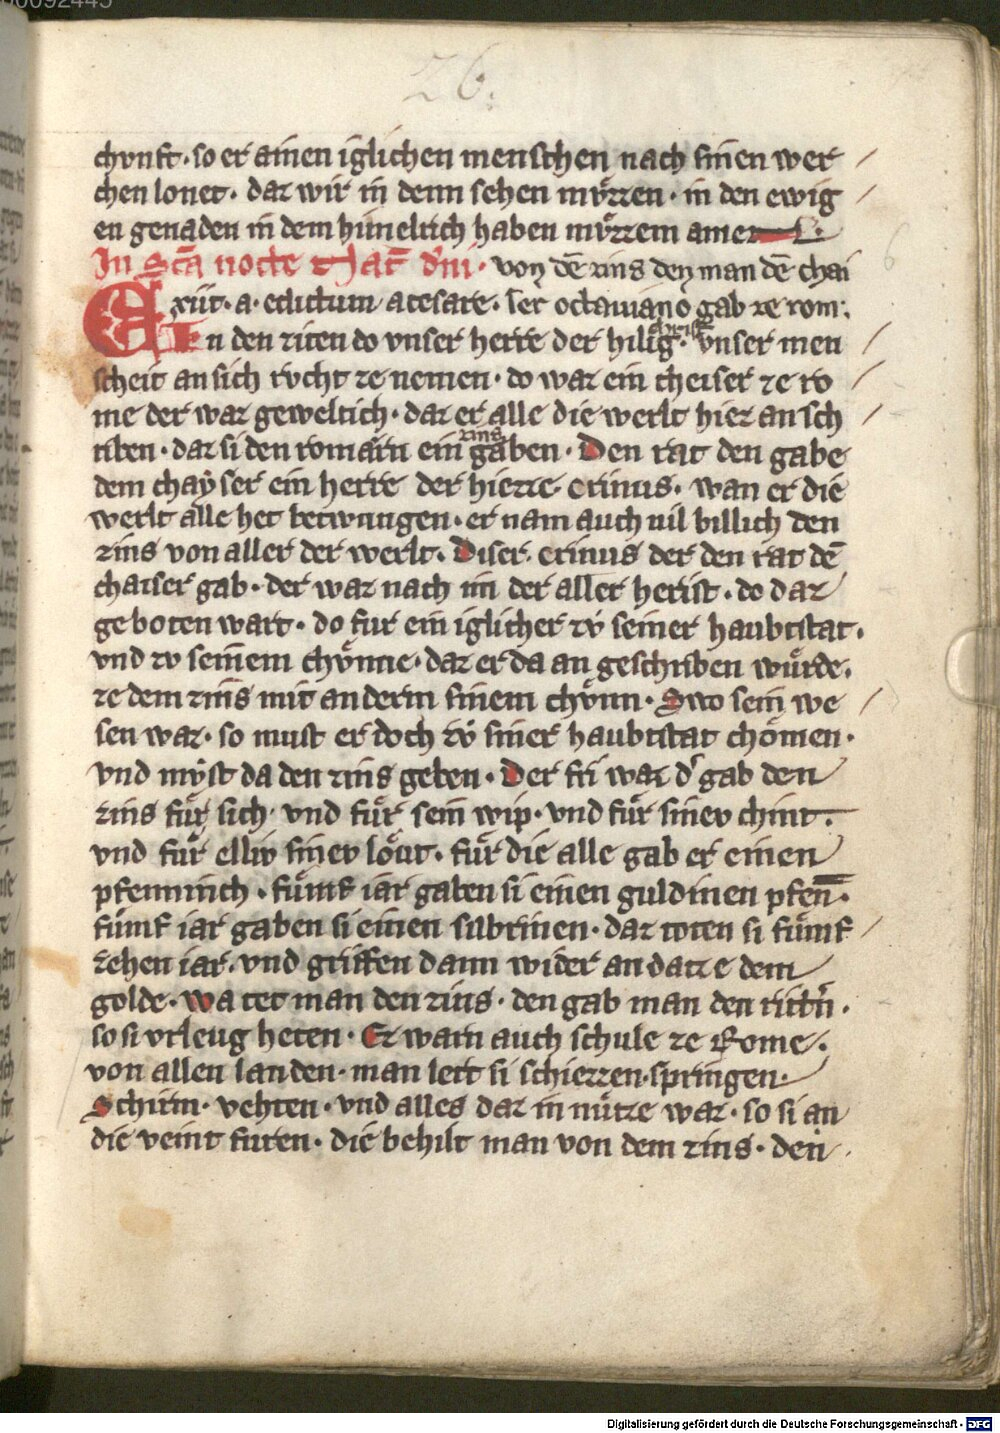 00092445
26.
chvnft · so er ainen iglichen menschen nach sinen wer
chen lonet · daz wir in denn sehen mv̊zzen · in den ewig
en genaden in dem himelrich haben mv̊zzem amen
In Sc̄a nocte Nat̄ dn̄i · von dē zins den man dē chai
Exiit · a · edictum a cesare · ser octauiano gab ze rom :
En den ziten do vnser herre der hilig · christ vnser men
scheit an sich rvcht ze nemen · do waz ein cheiser ze ro
me der waz geweltich · daz er alle die werlt hiez an sch
riben · daz si den romærn ein zins gaben · Den rat den gabe
dem chayser ein herre der hiezze · cirinus · wan er die
werlt alle het betwungen · er nam auch uil billich den
zins von aller der werlt · Diser · cirinus der den rat dē
chaiser gab · der waz nach im der aller herist · do daz
geboten wart · do fur ein iglicher zv̊ seiner haubtstat ·
vnd zv seinem chv̊nne · daz er da an geschriben wu̍rde ·
ze dem zins mit anderm sinem chv̊nn · Swo sein we
sen waz · so must er doch zv̊ siner haubtstat chömen ·
vnd mv̊st da den zins geben · Der fri waz d' gab den
zins fu̍r sich · vnd fu̍r sein wip · vnd fu̍r siner chint ·
vnd fu̍r elliv siner löut · fu̍r die alle gab er einen
pfenninch · fu̍mf iar gaben si einen guldinen pfen̄ ·
fu̍mf iar gaben si einen silbrinen · daz toten si fu̍mf
zehen iar · vnd griffen dann wider an datz e dem
golde · wa tet man den zins · den gab man den rittn̄ ·
so si vrleug heten · Ez warn auch schule ze Rome ·
von allen landen · man lert si schiezzen · springen ·
Schirm · vehten · vnd alles daz in nu̍tze waz · so si an
die veint furen · die behilt man von dem zins · den
6
Digitalisierung gefördert durch die Deutsche Forschungsgemeinschaft - DFG